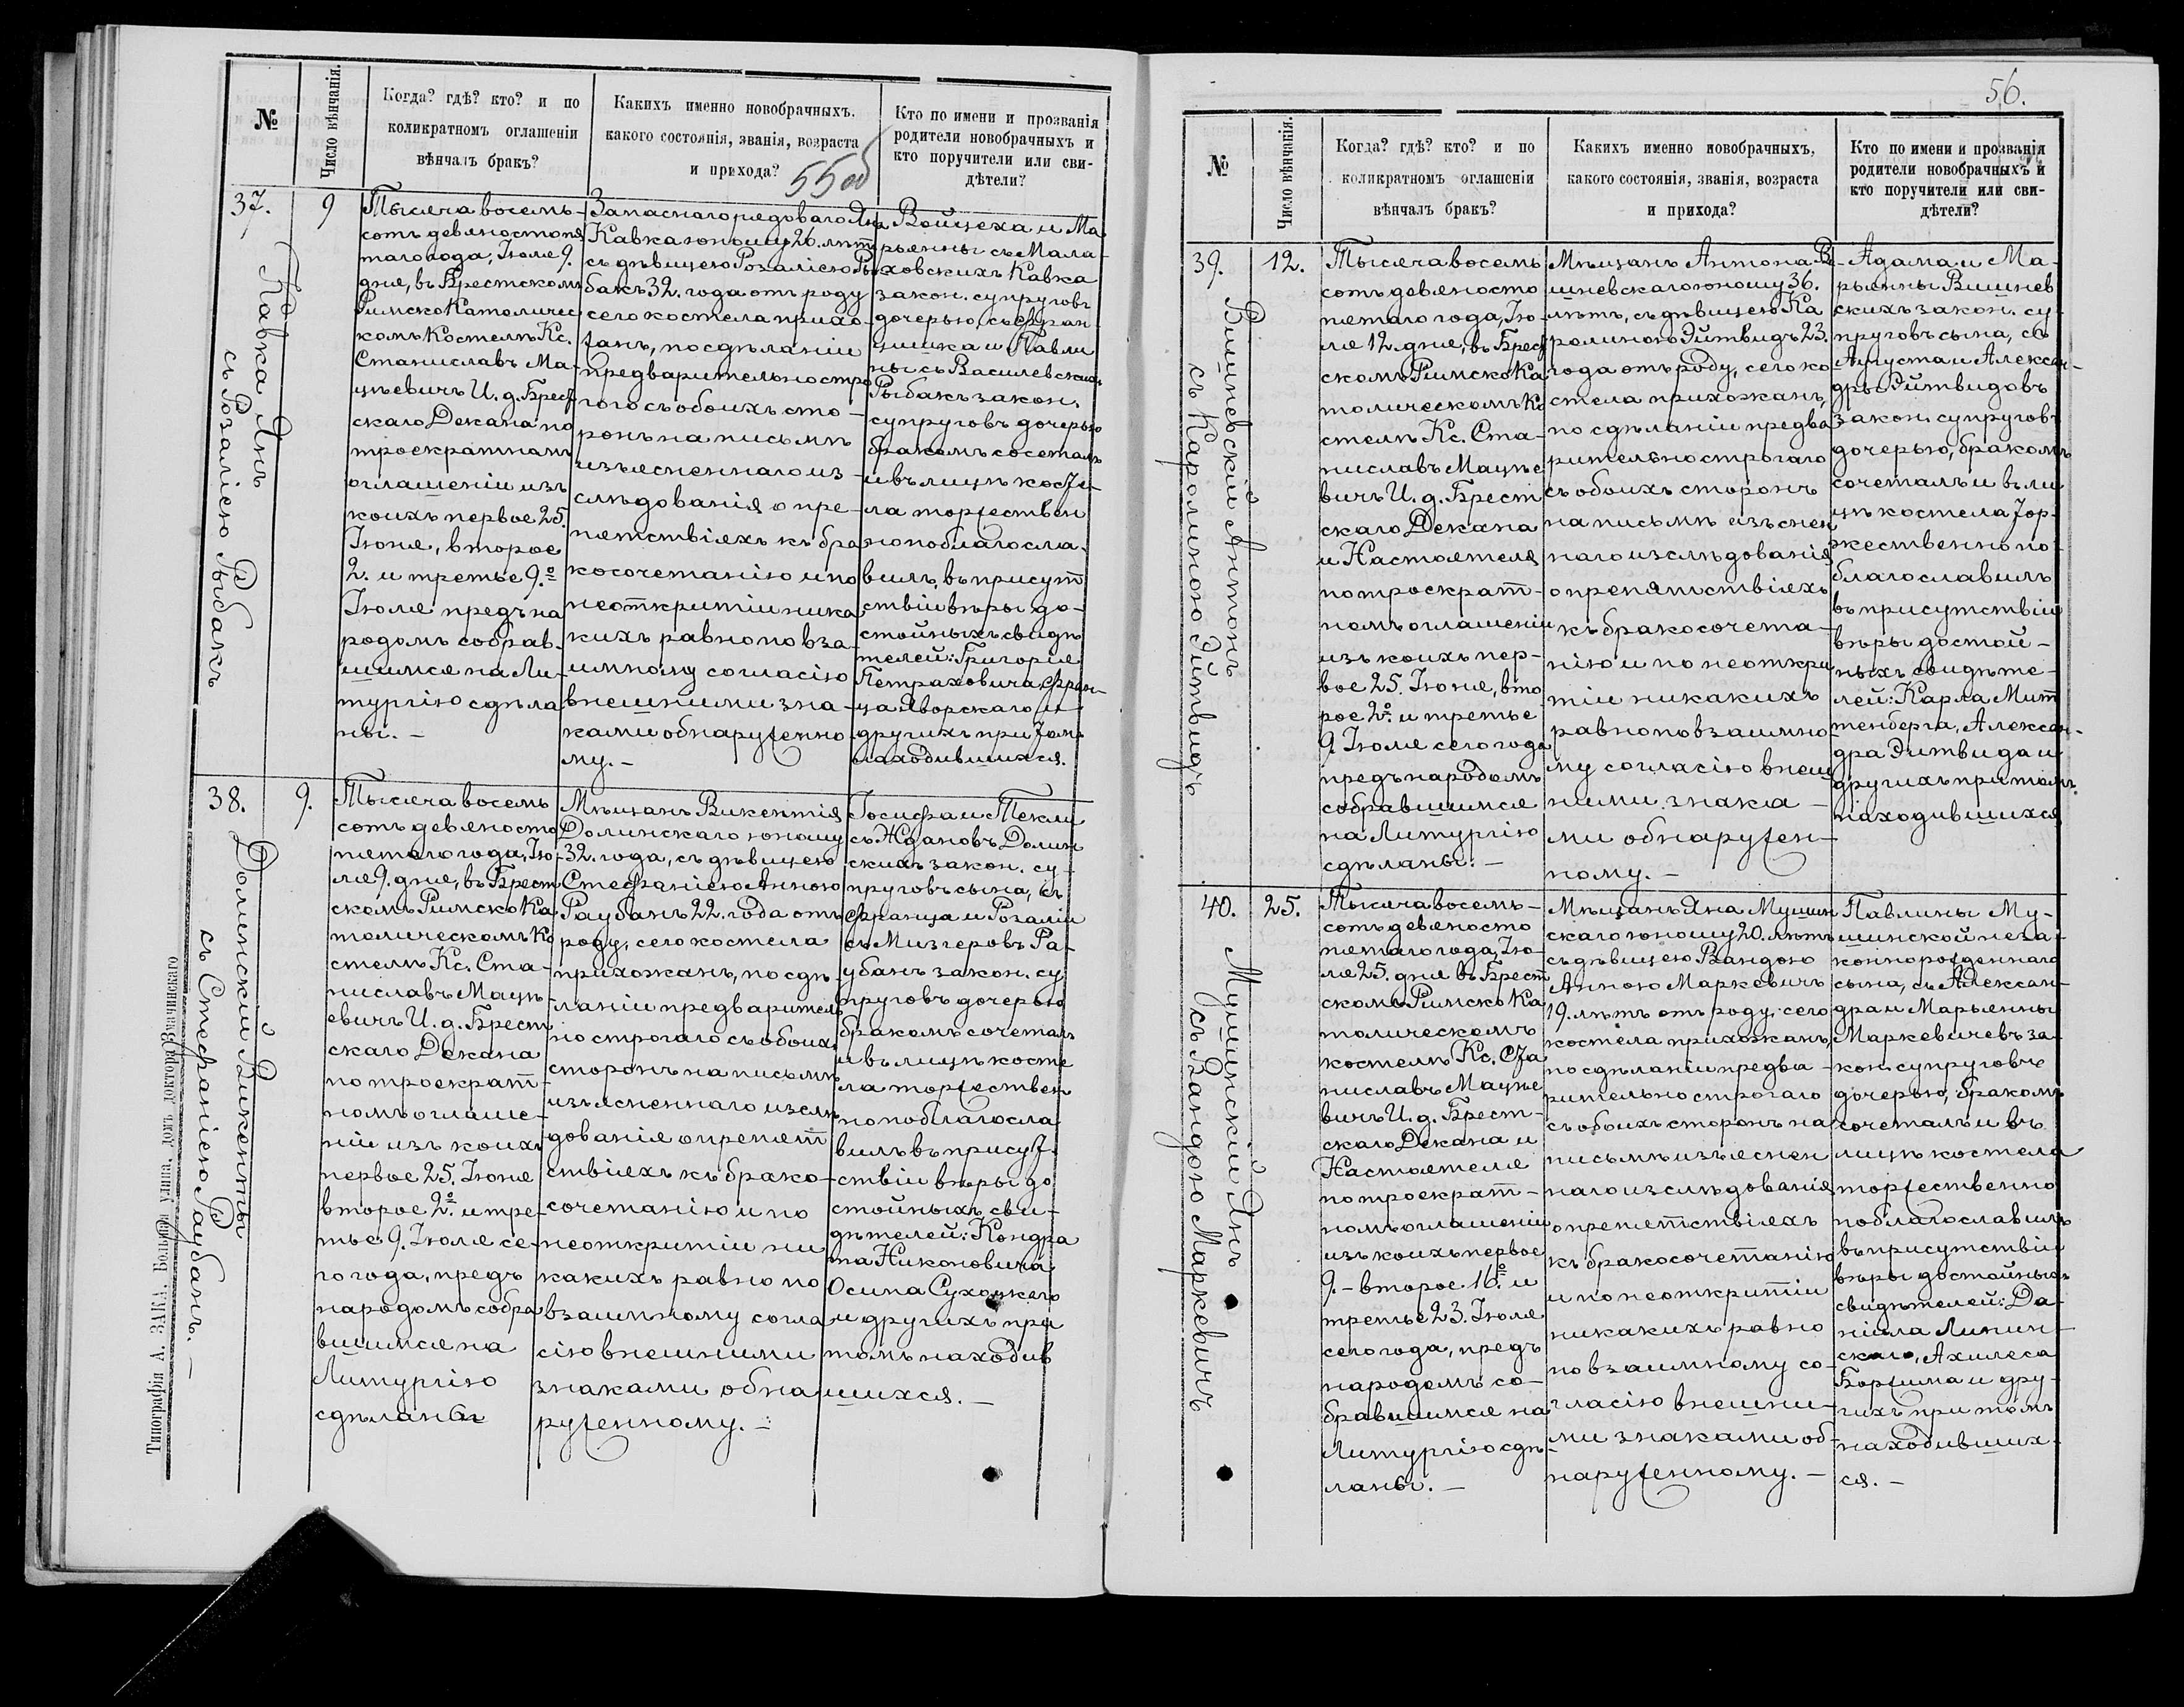 №
Число вѣнчанія.
Когда? гдѣ? кто? и по
коликратномъ оглашеніи
вѣнчалъ бракъ?
Какихъ именно новобрачныхъ.
какого состоянія, званія, возраста
и прихода?
Кто по имени и прозванія
родители новобрачныхъ и
кто поручители или сви-
дѣтели?
55об
37.
Кавка Янъ
съ Розаліею Рыбакъ
9
Тысяча восемь-
сотъ девяносто пя
таго года, Іюля 9.
дня, въ Брестскомъ
Римско Католичес
комъ Костелѣ Кс.
Станиславъ Ма-
цѣевичъ И. д. Брест
скаго Декана по
троекратномъ
оглашеніи изъ
коихъ первое 25.
Іюня, второе
2. и третье 9.º
Іюля предъ на
родомъ собрав-
шимся на Ли-
тургію сдѣла
ны. -
Запаснаго рядоваго Яна
Кавка юношу 26. лѣтъ
съ дѣвицею Розаліею Ры
бакъ 32. года отъ роду
сего костела прихо-
жанъ, по сдѣланіи
предварительно стро
гого съ обоихъ сто-
ронъ на письмѣ
изъясненнаго из-
слѣдованія о пре-
пятствіяхъ къ бра
косочетанію и по
неоткритіи ника
кихъ равно по вза-
имному согласію
внешними зна-
ками обнаруженно
му. -
Войцеха и Ма
рьянны съ Мала-
ховскихъ Кавка
закон. супруговъ
дочерью, съ Фран-
цишка и Павли
ны съ Василевскихъ
Рыбакъ закон.
супруговъ дочерью
бракомъ сочеталъ
и въ лицѣ косте-
ла торжествен
но поблагосла-
вилъ, въ присут
ствіи вѣры до-
стойныхъ свидѣ
телей: Григорія
Петраховича, Фран-
ца Яворскаго и
другихъ при томъ
находившихся.
38.
Долинскій Викентій
съ Стефаніею Раубанъ. -
9.
Тысяча восемь
сотъ девяносто
пятаго года, Ію-
ля 9. дня, въ Брест
скомъ Римско Ка
толическомъ Ко
стелѣ Кс. Ста-
ниславъ Мацѣ-
евичъ И. д. Брест
скаго Декана
по троекрат-
номъ оглаше-
ніи изъ коихъ
первое 25. Іюня
второе 2.º и тре-
тье 9. Іюля се-
го года, предъ
народомъ собра
вшимся на
Литургію
сдѣланы
Мѣщанъ Викентія
Долинскаго юношу
32. года, съ дѣвицею
Стефаніею Анною
Раубанъ 22. года отъ
роду, сего костела
прихожанъ, по сдѣ-
ланіи предваритель
но строгаго съ обоихъ
сторонъ на письмѣ
изъясненнаго изслѣ
дованія о препят
ствіяхъ къ брако-
сочетанію и по
неоткритіи ни
какихъ равно по
взаимному согла
сію внешними
знаками обна
руженному. -
Іосифа и Текли
съ Ждановъ Долин
скихъ закон. су-
пруговъ сына, съ
Франца и Розаліи
съ Мизгеровъ Ра-
убанъ закон. су
пруговъ дочерью
бракомъ сочеталъ
и въ лицѣ косте
ла торжествен
но поблагосла
вилъ въ присут-
ствіи вѣры до
стойныхъ сви-
дѣтелей: Кондра
та Никоновича
Осипа Сухоцкаго
и другихъ при
томъ находив
шихся. -
Типографія А. ЗАКА, Большая улица, домъ доктора Значинскаго
56.
№
Число вѣнчанія.
Когда? гдѣ? кто? и по
коликратномъ оглашеніи
вѣнчалъ бракъ?
Какихъ именно новобрачныхъ,
какого состоянія, званія, возраста
и прихода?
Кто по имени и прозванія
родители новобрачныхъ и
кто поручители или сви-
дѣтели?
39.
Вишневскій Антонъ
съ Каролиною Эйтвидъ
12.
Тысяча восемь
сотъ девяносто
пятаго года, Ію-
ля 12. дня, въ Брест
скомъ Римско Ка
толическомъ Ко
стелѣ Кс. Ста-
ниславъ Мацѣе
вичъ И. д. Брест
скаго Декана
и Настоятеля
по троекрат-
номъ оглашеніи
изъ коихъ пер-
вое 25. Іюня, вто
рое 2.º и третье
9. Іюля сего года
предъ народомъ
собравшимся
на Литургію
сдѣланы. -
Мѣщанъ Антона Ви-
шневскаго юношу 36.
лѣтъ, съ дѣвицею Ка
ролиною Эйтвидъ 23.
года отъ роду, сего ко
стела прихожанъ,
по сдѣланіи предва
рительно строгаго
съ обоихъ сторонъ
на письмѣ изъяснен
наго изслѣдованія
о препятствіяхъ
къ бракосочета-
нію и по неоткри
тіи никакихъ
равно по взаимно
му согласію внеш
ними знака-
ми обнаружен-
ному. -
Адама и Ма-
рьянны Вишнев
скихъ закон. су-
пруговъ сына, съ
Августа и Алексан-
дры Эйтвидовъ
закон. супруговъ
дочерью, бракомъ
сочеталъ и въ ли
цѣ костела тор-
жественно по-
благославилъ
въ присутствіи
вѣры достой-
ныхъ свидѣте-
лей: Карла Мит
тенберга, Алексан-
дра Эитвида и
другихъ при томъ
находившихся
40.
Мушинскій Янъ
съ Вандою Маркевичъ
25.
Тысяча восемь-
сотъ девяносто
пятаго года, Ію-
ля 25. дня въ Брест
скомъ Римско Ка
толическомъ
костелѣ Кс. Ста
ниславъ Мацѣе
вичъ И. д. Брест-
скаго Декана и
Настоятеля
по троекрат-
номъ оглашеніи
изъ коихъ первое
9. - второе 16.º и
третье 23. Іюля
сего года, предъ
народомъ со-
бравшимся на
Литургію сдѣ-
ланы. -
Мѣщанъ Яна Мушин
скаго юношу 20. лѣтъ
съ дѣвицею Вандою
Анною Маркевичъ
19. лѣтъ отъ роду, сего
костела прихожанъ,
по сдѣланіи предва-
рительно строгаго
съ обоихъ сторонъ на
письмѣ изъяснен
наго изслѣдованія
о препятствіяхъ
къ бракосочетанію
и по неоткритіи
никакихъ равно
по взаимному со-
гласію внешни-
ми знаками об-
наруженному. -
Павлины Му-
шинской неза-
коннорожденнаго
сына, съ Алексан-
дра и Марьянны
Маркевичевъ за-
кон. супруговъ
дочерью, бракомъ
сочеталъ и въ
лицѣ костела
торжественно
поблагославилъ
въ присутствіи
вѣры достойныхъ
свидѣтелей: Да-
ніила Линин-
скаго, Ахилеса
Боржима и дру-
гихъ при томъ
находивших-
ся. -